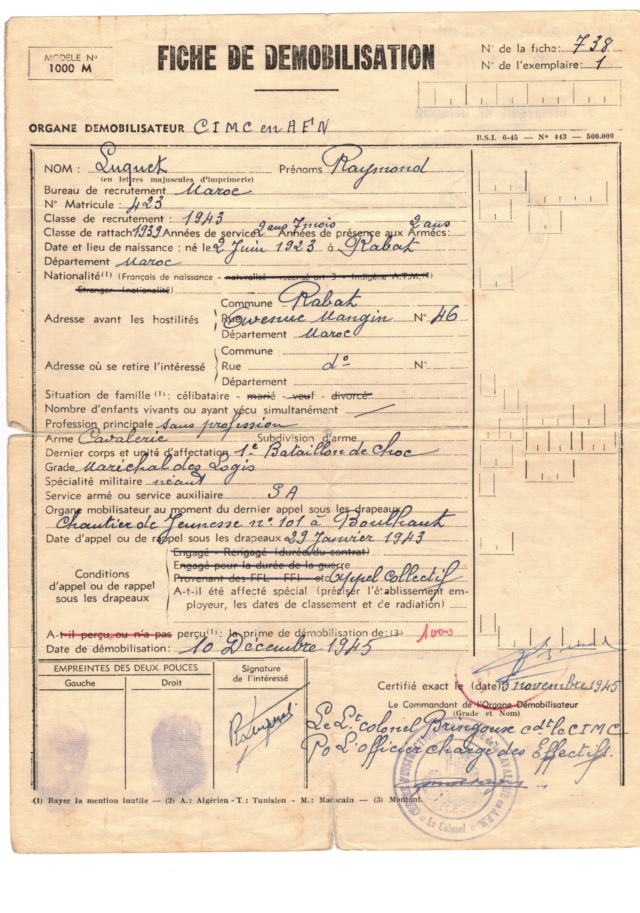 MODELE No
1000 M
FICHE DE DEMOBILISATION
No de la fiche: 738
No de l'exemplaire: 1
ORGANE DEMOBILISATEUR CIMC en AFN
B.S.I. 6-45 — No 443 — 500.000
NOM : Luquet Prénoms Raymond
(en lettres majuscules d'imprimerie)
Bureau de recrutement Maroc
No Matricule : 423
Classe de recrutement : 1943
Classe de rattach 1939 Années de service 2 ans 7 mois Années de présence aux Armées: 2 ans
Date et lieu de naissance : né le 2 Juin 1923 à Rabat
Département Maroc
Nationalité (1) (Français de naissance - naturalisé - recensé art. 3 - Indigène A.T.M. (2)
Etranger (nationalité)
Commune Rabat
Adresse avant les hostilités Rue Avenue Mangin No 46
Département Maroc
Commune
Adresse où se retire l'intéressé Rue do No
Département
Situation de famille (1) : célibataire - marié - veuf - divorcé
Nombre d'enfants vivants ou ayant vécu simultanément
Profession principale sans profession
Arme Cavalerie Subdivision d'arme
Dernier corps et unité d'affectation 1e Bataillon de choc
Grade Maréchal des Logis
Spécialité militaire néant
Service armé ou service auxiliaire SA
Organe mobilisateur au moment du dernier appel sous les drapeaux
Chantier de Jeunesse no 101 à Boulhaut
Date d'appel ou de rappel sous les drapeaux 29 Janvier 1943
Conditions d'appel ou de rappel sous les drapeaux
Engagé - Rengagé (durée du contrat)
Engagé pour la durée de la guerre
Provenant des FFL - FFI - etc Appel Collectif
A-t-il été affecté spécial (préciser l'établissement employeur, les dates de classement et de radiation)
A-t-il perçu, ou n'a pas perçu (1) : la prime de démobilisation de: (3) 1000
Date de démobilisation: 10 Décembre 1945
EMPREINTES DES DEUX POUCES
Gauche Droit
Signature
de l'intéressé
Certifié exact le (date) novembre 1945
Le Commandant de l'Organe Démobilisateur
(Grade et Nom)
Le Lt colonel Bringoux cdt le CIMC
Po L'officier chargé des Effectifs.
Le Colonel
(1) Rayer la mention inutile — (2) A.: Algérien - T.: Tunisien - M.: Marocain — (3) Montant.